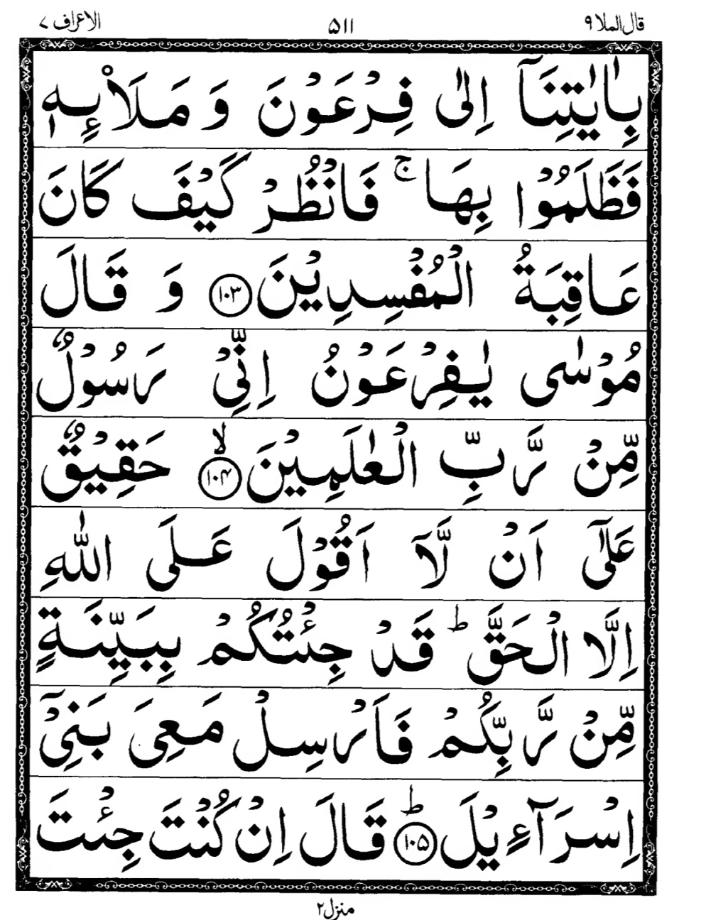 قال الملا ٩ ٥١١ الاعراف ٧
بِاٰيٰتِنَاۤ اِلٰى فِرْعَوْنَ وَ مَلَا۠ئِهٖ
فَظَلَمُوْا بِهَا ۚ فَانْظُرْ كَيْفَ كَانَ
عَاقِبَةُ الْمُفْسِدِيْنَ ١٠٣ وَ قَالَ
مُوْسٰى يٰفِرْعَوْنُ اِنِّيْ رَسُوْلٌ
مِّنْ رَّبِّ الْعٰلَمِيْنَ ۙ ١٠٤ حَقِيْقٌ
عَلٰۤى اَنْ لَّاۤ اَقُوْلَ عَلَى اللّٰهِ
اِلَّا الْحَقَّ ؕ قَدْ جِئْتُكُمْ بِبَيِّنَةٍ
مِّنْ رَّبِّكُمْ فَاَرْسِلْ مَعِيَ بَنِيْۤ
اِسْرَآءِيْلَ ؕ ١٠٥ قَالَ اِنْ كُنْتَ جِئْتَ
منزل ٢